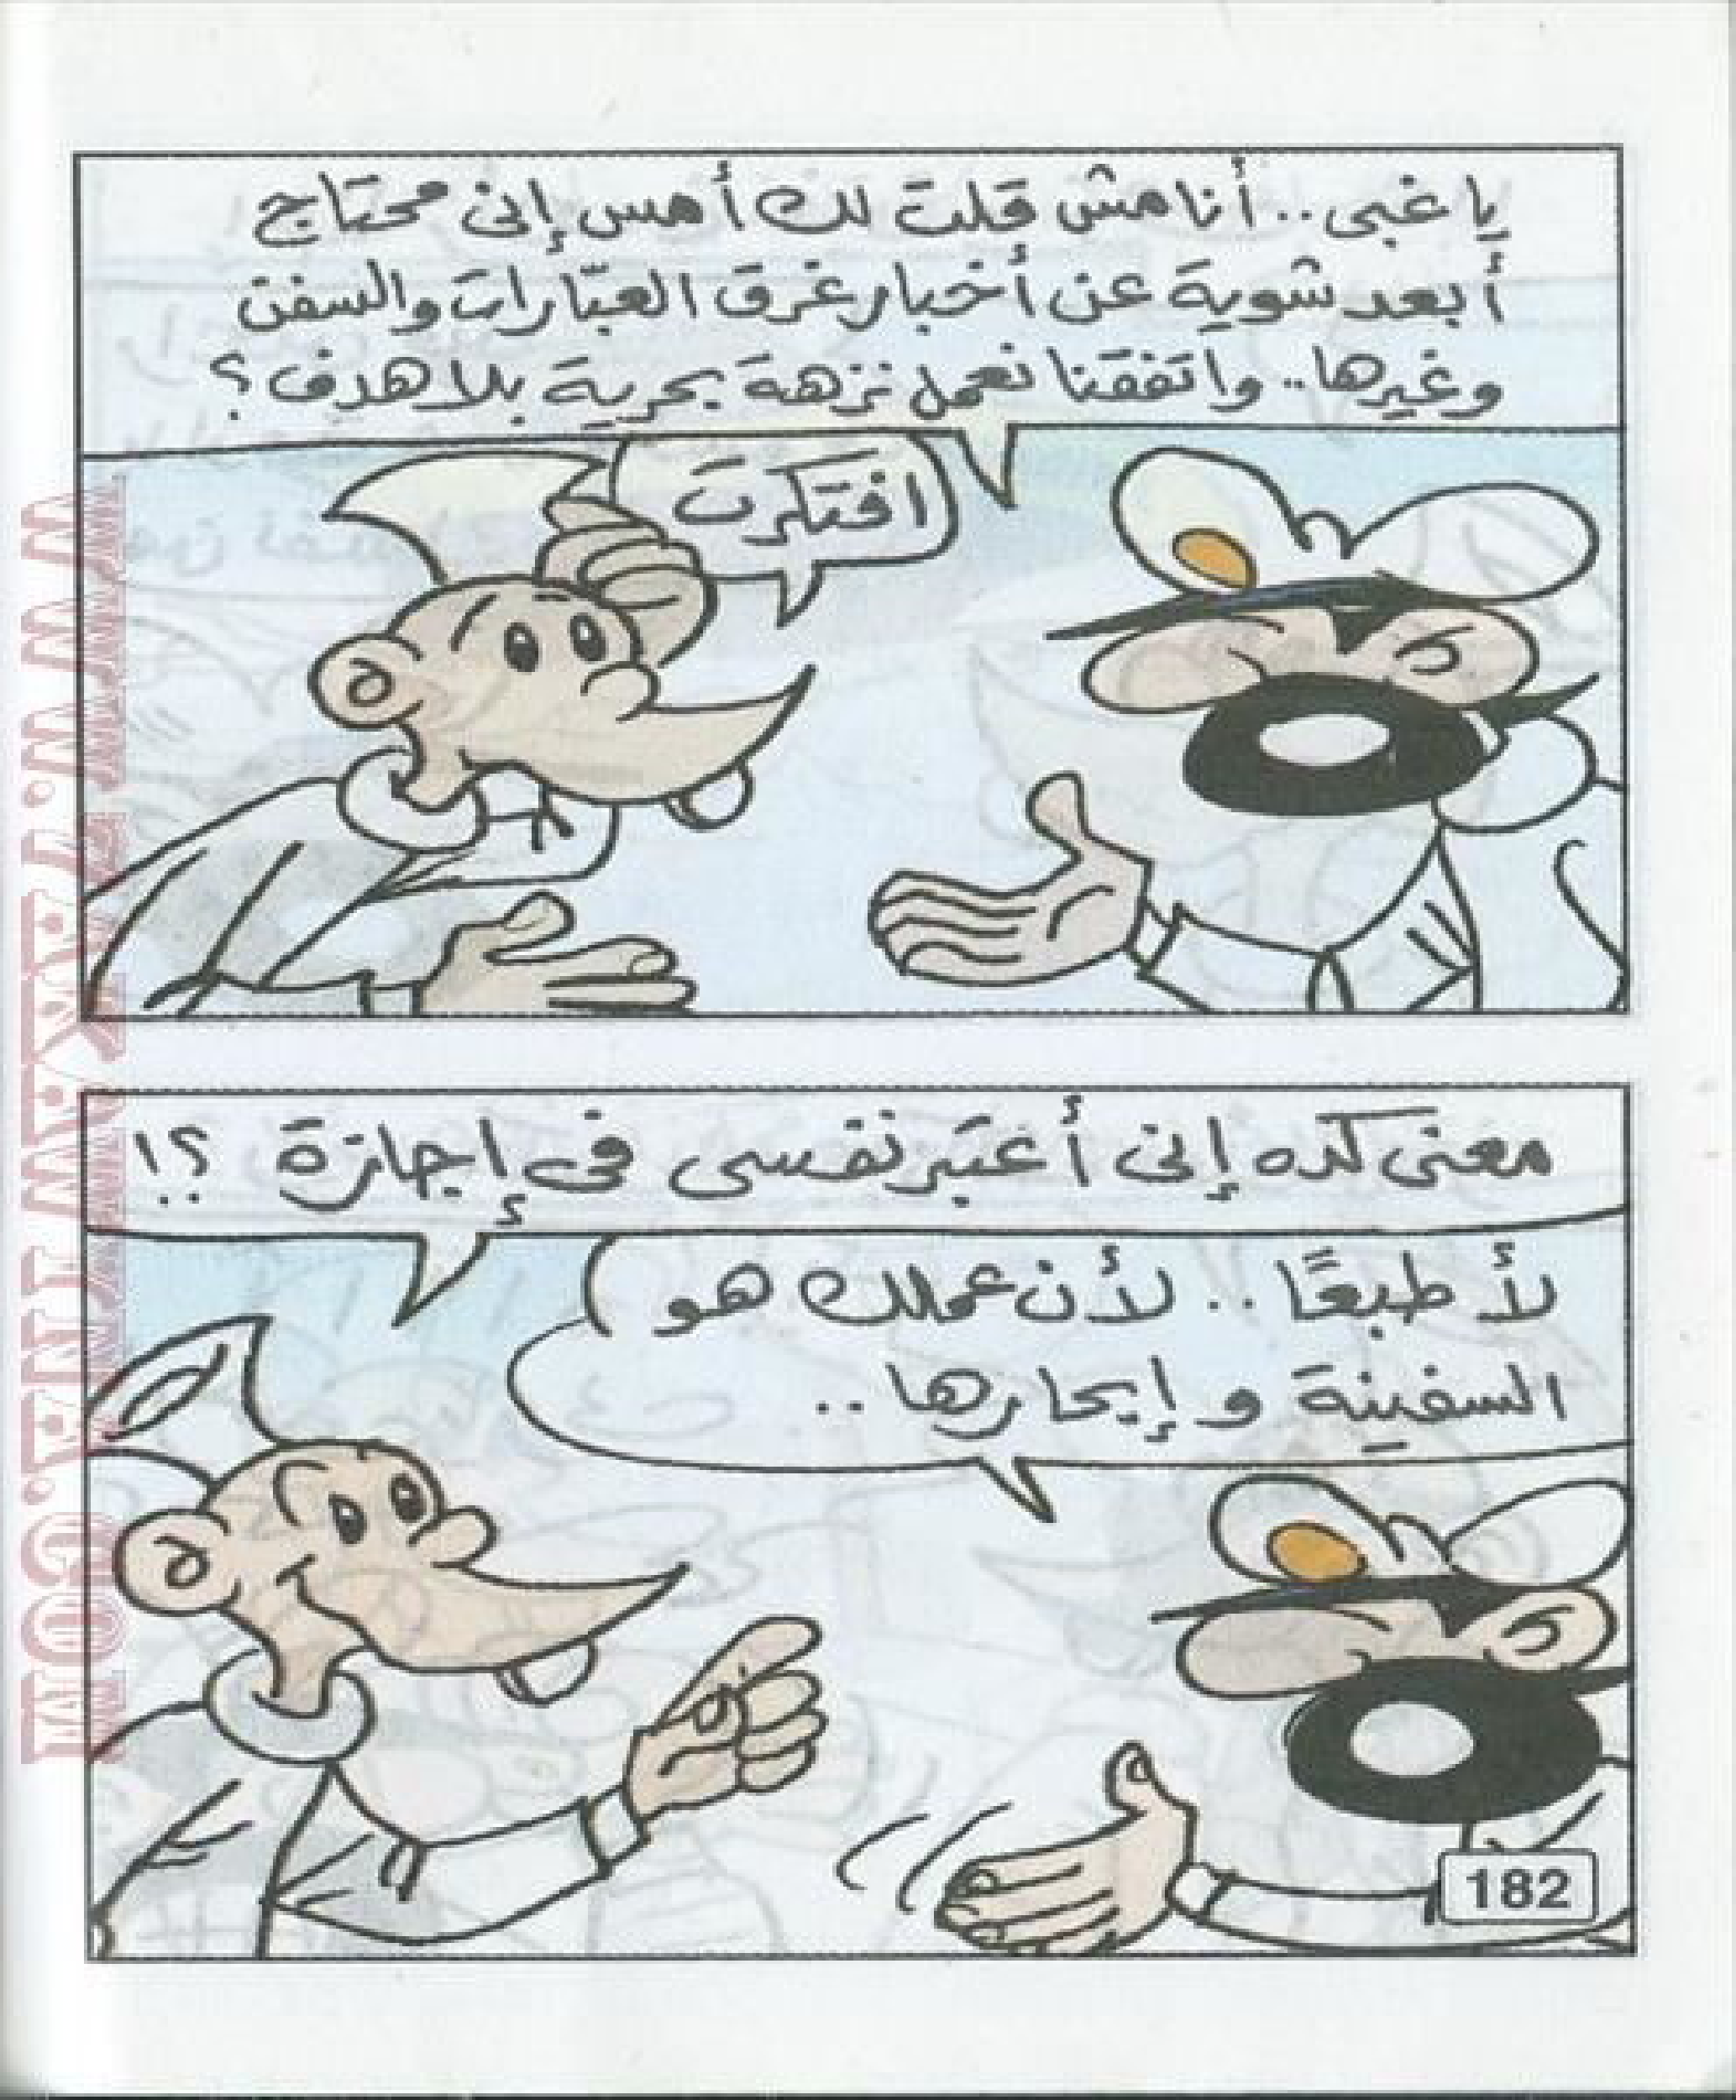 يا غبى.. أنا مش قلت لك أمس إنى محتاج
أبعد شوية عن أخبار غرق العبّارات والسفن
وغيرها.. واتفقنا نعمل نزهة بحرية بلا هدف؟
افتكرت
معنى كده إنى أعتبر نفسى فى إجازة ؟!
لأ طبعًا.. لأن عملك هو
السفينة و إبحارها..
182